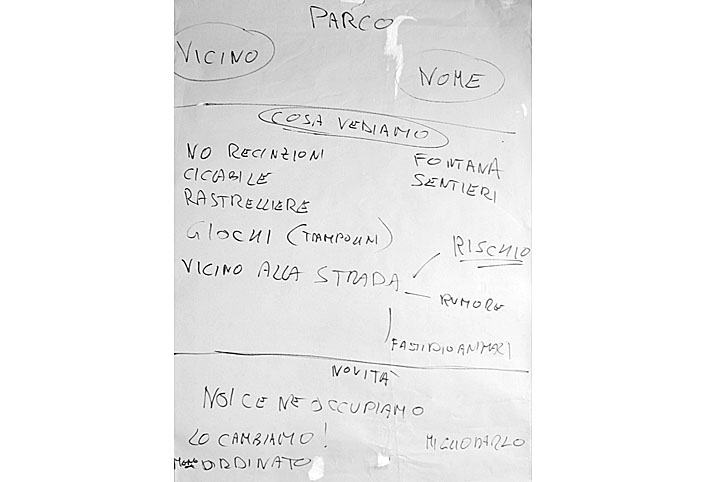 PARCO
VICINO
NOME
COSA VEDIAMO
NO RECINZIONI
CICABILE
RASTRELLIERE
FONTANA
SENTIERI
GIOCHI (TAMPOLINI)
VICINO ALLA STRADA
RISCHIO
RUMORE
FASTIDIO ANIMALI
NOVITÀ
NOI CE NE OCCUPIAMO
LO CAMBIAMO!
MIGLIORARLO
ORDINATO